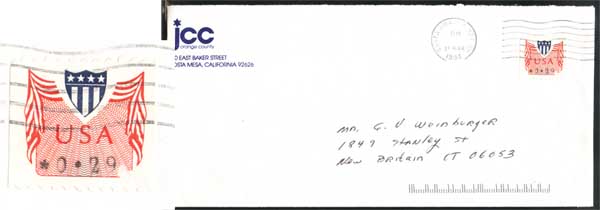 USA
*0*29
jcc
orange county
0 EAST BAKER STREET
OSTA MESA, CALIFORNIA 92626
PM
1993
USA
*0*29
MR. G. V Weinburger
1849 Stanley St
New Britain CT 06053